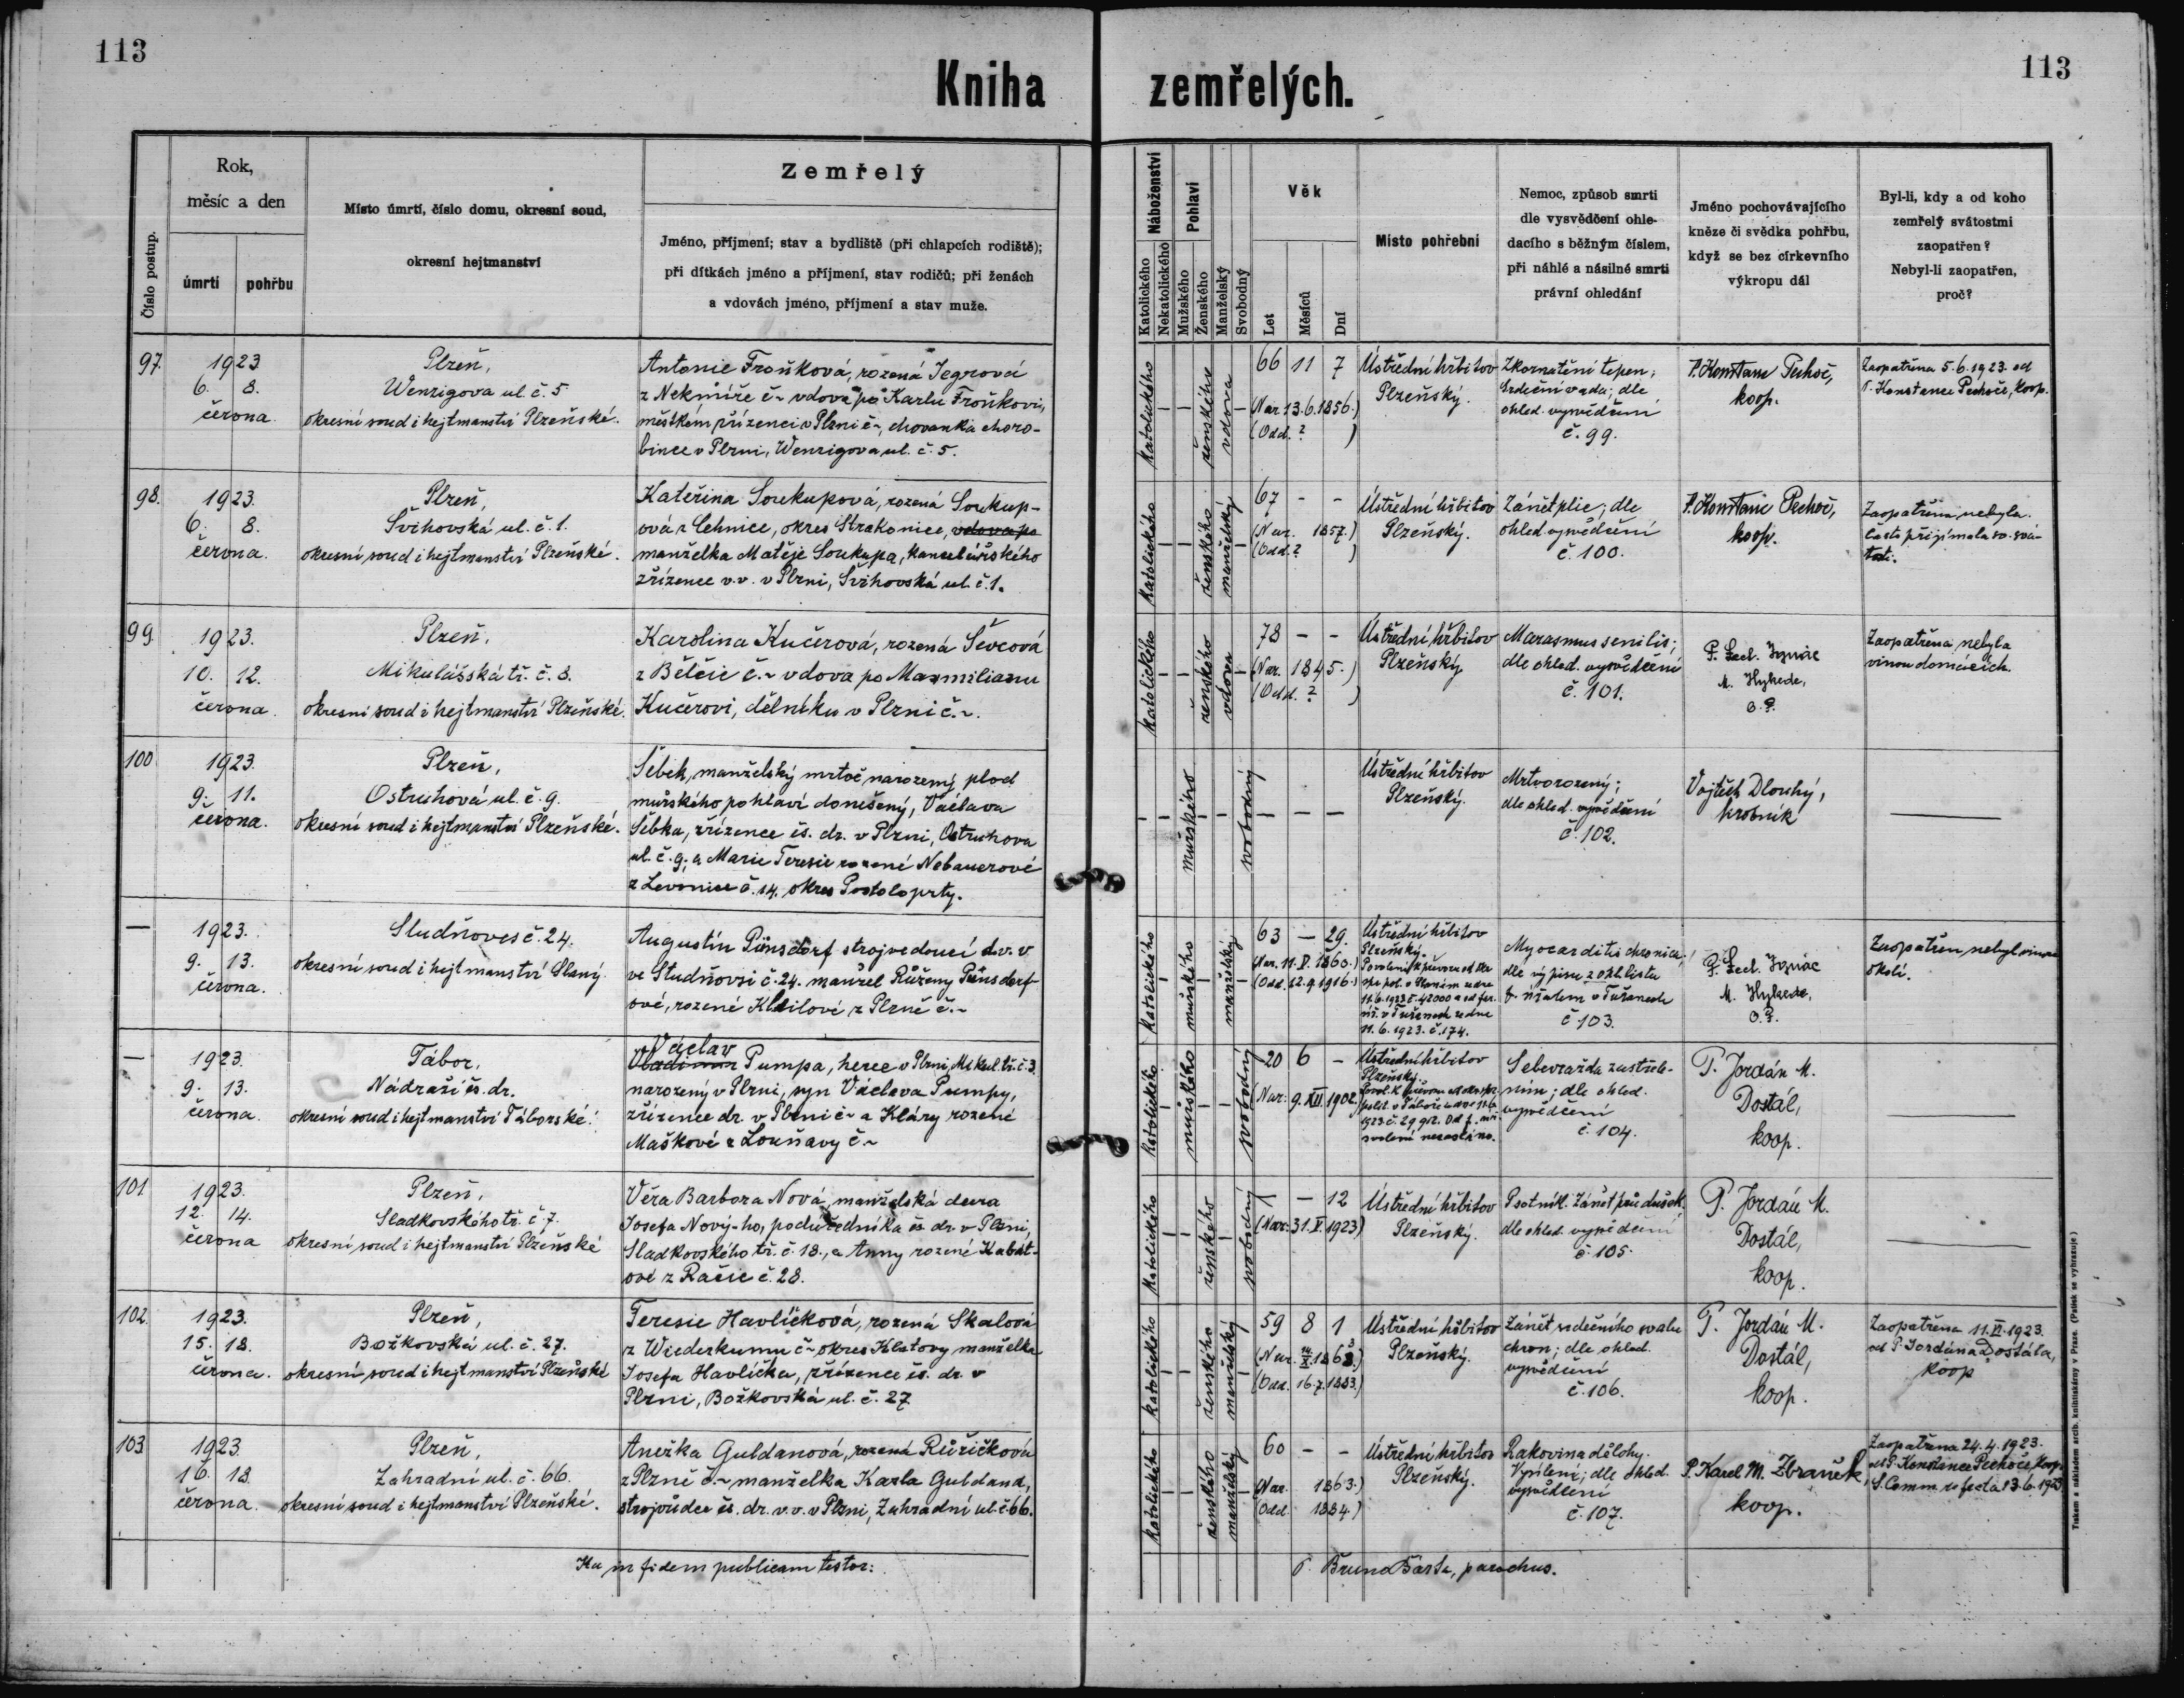 113
113
Kniha zemřelých.
Číslo postup.
Rok,
měsíc a den
úmrtí
pohřbu
Místo úmrtí, číslo domu, okresní soud,
okresní hejtmanství
Zemřelý
Jméno, příjmení; stav a bydliště (při chlapcích rodiště);
při dítkách jméno a příjmení, stav rodičů; při ženách
a vdovách jméno, příjmení a stav muže.
Náboženství
Katolického
Nekatolického
Pohlaví
Mužského
Ženského
Manželský
Svobodný
Věk
Let
Měsíců
Dní
Místo pohřební
Nemoc, způsob smrti
dle vysvědčení ohle-
dacího s běžným číslem,
při náhlé a násilné smrti
právní ohledání
Jméno pochovávajícího
kněze či svědka pohřbu,
když se bez církevního
výkropu dál
Byl-li, kdy a od koho
zemřelý svátostmi
zaopatřen?
Nebyl-li zaopatřen,
proč?
97.
1923
6. 8.
června.
Plzeň,
Wenzigova ul. č. 5
okresní soud i hejtmanství Plzeňské.
Antonie Froňková, rozená Jegrová
z Nekmíře č~ vdova po Karlu Froňkovi,
městském zřízenci v Plzni č~, chovanka choro-
bince v Plzni, Wenzigova ul. č. 5.
katolického
ženského
vdova
66 11 7
(Nar. 13.6.1856.)
(Odd. ? )
Ústřední hřbitov
Plzeňský.
Zkornatění tepen;
Srdeční vada; dle
ohled. vysvědčení
č. 99.
P. Konstanc Pechoč,
koop.
Zaopatřena 5.6.1923. od
P. Konstance Pechoče, koop.
98.
1923.
6. 8.
června.
Plzeň,
Švihovská ul. č. 1.
okresní soud i hejtmanství Plzeňské.
Kateřina Soukupová, rozená Soukup-
ová z Lehnice, okres Strakonice, vdova po
manželka Matěje Soukupa, kancelářského
zřízence v.v. v Plzni, Švihovská ul. č. 1.
katolického
ženského
manželský
67 - -
(Nar. 1857.)
(Odd. ? )
Ústřední hřbitov
Plzeňský.
Zánět plic; dle
ohled. vysvědčení
č. 100.
P. Konstanc Pechoč,
koop.
Zaopatřena nebyla.
Často přijímala sv. svá-
tosti.
99.
1923.
10. 12.
června.
Plzeň,
Mikulášská tř. č. 8.
okresní soud i hejtmanství Plzeňské.
Karolina Kučerová, rozená Ševcová
z Bělčic č.~ vdova po Maxmilianu
Kučerovi, dělníku v Plzni č.~.
katolického
ženského
vdova
78 - -
(Nar. 1845.)
(Odd. ? )
Ústřední hřbitov
Plzeňský
Marasmus senilis;
dle ohled. vysvědčení
č. 101.
P. Ignác
M. Hyhede,
O.P.
Zaopatřena nebyla
vinou domácích.
100
1923.
9. 11.
června.
Plzeň,
Ostruhová ul. č. 9.
okresní soud i hejtmanství Plzeňské.
Šebek, manželský mrtvě narozený plod
mužského pohlaví donešený, Václava
Šebka, zřízence čs. dr. v Plzni, Ostruhova
ul. č. 9, a Marie Teresie rozené Nebauerové
z Levonice č. 14. okres Postoloprty.
mužského
svobodný
Ústřední hřbitov
Plzeňský.
Mrtvorozený;
dle ohled. vysvědčení
č. 102.
Vojtěch Dlouhý,
hrobník
—
1923.
9. 13.
června.
Studňoves č. 24.
okresní soud i hejtmanství Slaný.
Augustín Pünsdorf strojvedoucí d.v.v.
ve Studňovsi č. 24. manžel Růženy Pünsdorf-
ové, rozené Kleilové z Plzně č.~
katolického
mužského
manželský
63 — 29.
(Nar. 11.V.1860.)
(Odd. 12.9.1916.)
Ústřední hřbitov
Plzeňský.
11.6.1923. č. 174.
Myocarditis chronica;
dle výpisu z ohl. listu
č. 103.
P. Ignác
M. Hyhede,
O.P.
Zaopatřen nebyl vinou
okolí.
—
1923.
9. 13.
června.
Tábor,
Nádraží čs. dr.
okresní soud i hejtmanství Táborské.
Václav
Vladimír Pumpa, herec v Plzni, Mikul. tř. č. 3.
narozený v Plzni, syn Václava Pumpy,
zřízence dr. v Plzni č~ a Kláry rozené
Maškové z Louňavy č~
katolického
mužského
svobodný
20 6 -
(Nar. 9.XII.1902.)
Ústřední hřbitov
Plzeňský.
Sebevražda zastřele-
ním; dle ohled.
vysvědčení
č. 104.
P. Jordán M.
Dostál,
koop.
101
1923.
12. 14.
června
Plzeň,
Sladkovského tř. č. 7.
okresní soud i hejtmanství Plzeňské
Věra Barbora Nová, manželská dcera
Josefa Nový-ho, podúředníka čs. dr. v Plzni,
Sladkovského tř. č. 18., a Anny rozené Kabát-
ové z Račic č. 28.
katolického
ženského
svobodný
- - 12
(Nar. 31.V.1923)
Ústřední hřbitov
Plzeňský.
Psotník. Zánět průdušek.
dle ohled. vysvědčení
č. 105.
P. Jordán M.
Dostál,
koop.
102.
1923.
15. 18.
června.
Plzeň,
Božkovská ul. č. 27.
okresní soud i hejtmanství Plzeňské
Teresie Havlíčková, rozená Skalová
z Wiederkumu č~ okres Klatovy manželka
Josefa Havlíčka, zřízence čs. dr. v
Plzni, Božkovská ul. č. 27.
katolického
ženského
manželský
59 8 1
(Odd. 16.7.1883.)
Ústřední hřbitov
Plzeňský.
Zánět srdečního svalu
chron; dle ohled.
vysvědčení
č. 106.
P. Jordán M.
Dostál,
koop.
Zaopatřena 11.VI.1923.
od P. Jordána Dostála,
koop
103
1923.
16. 18.
června.
Plzeň,
Zahradní ul. č. 66.
okresní soud i hejtmanství Plzeňské.
Anežka Guldanová, rozená Růžičková
z Plzně č~ manželka Karla Guldana,
strojvůdce čs. dr. v.v. v Plzni, Zahradní ul. č. 66.
katolického
ženského
manželský
60 - -
(Nar. 1863.)
(Odd. 1884.)
Ústřední hřbitov
Plzeňský.
Rakovina dělohy.
Vysílení; dle ohled.
vysvědčení
č. 107.
P. Karel M. Zbraněk,
koop.
Zaopatřena 24.4.1923.
od P. Konstance Pechoče, koop.
S. Comm. refecta 13.6.1923.
Ita in fidem publicam testor:
P. Bruno Bárta, parochus.
Tiskem a nákladem arcib. knihtiskárny v Praze. (Patisk se vyhrazuje.)